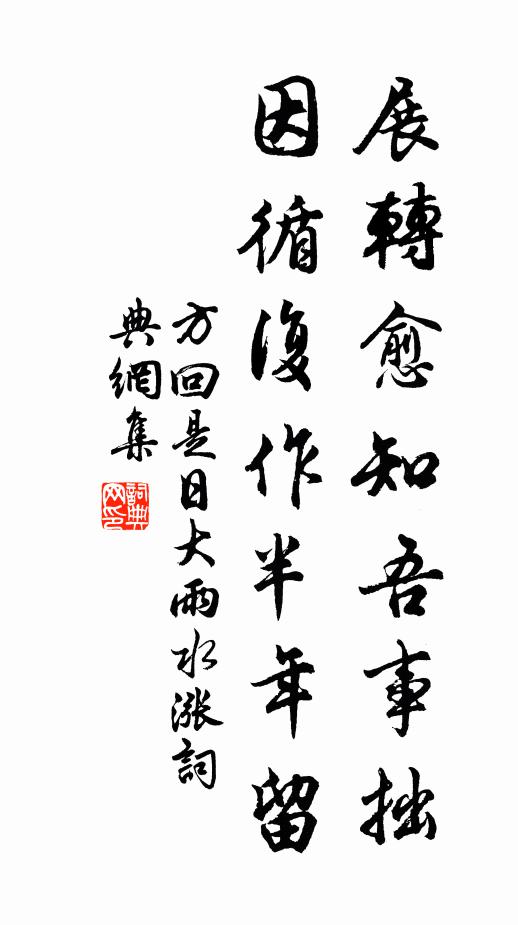 展轉愈知吾事拙
因循復作半年留
方回是日大雨水漲詞
典網集
詞典网印